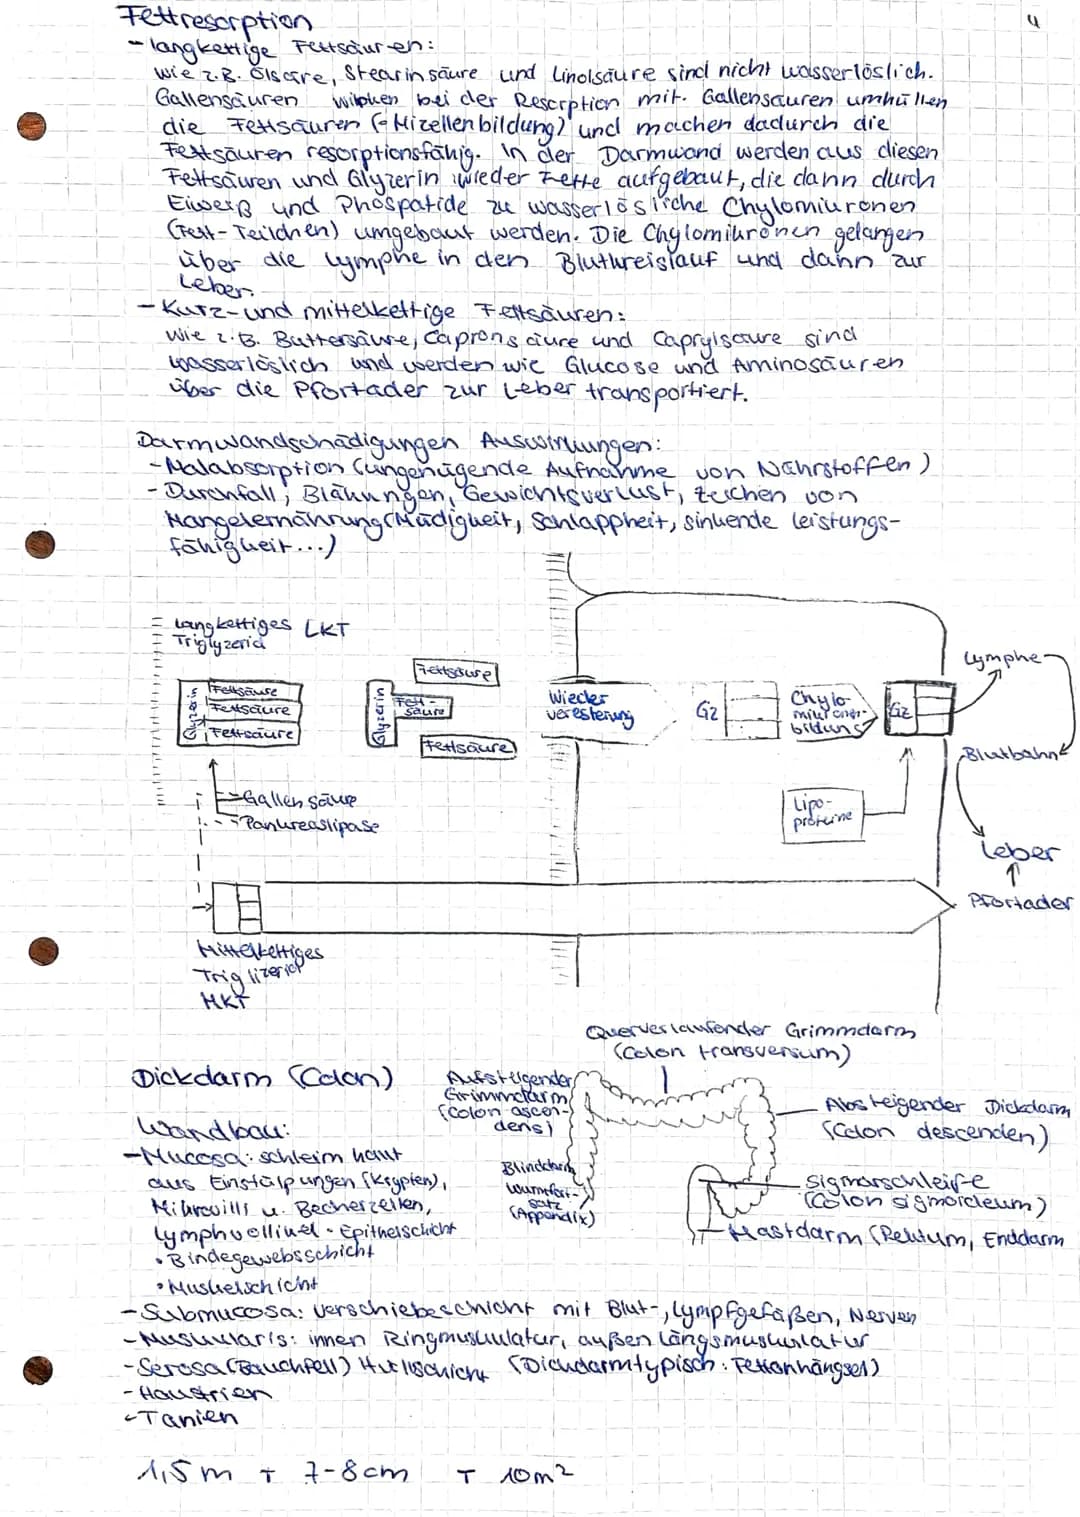 4
Fettresorption
- langkettige Fettsäuren:
wie z.B. Ölsäre, Stearinsäure und Linolsäure sind nicht wasserlöslich.
Gallensäuren wirken bei der Resorption mit. Gallensäuren umhüllen
die Fettsäuren (=Mizellenbildung) und machen dadurch die
Fettsäuren resorptionsfähig. In der Darmwand werden aus diesen
Fettsäuren und Glyzerin wieder Fette aufgebaut, die dann durch
Eiweiß und Phospatide zu wasserlösliche Chylomikronen
(Fett-Teilchen) umgebaut werden. Die Chylomikronen gelangen
über die Lymphe in den Blutkreislauf und dann zur
Leber.
- Kurz- und mittelkettige Fettsäuren:
wie z.B. Buttersäure, Capronsäure und Caprylsäure sind
wasserlöslich und werden wie Glucose und Aminosäuren
über die Pfortader zur Leber transportiert.
Darmwandschädigungen Auswirkungen:
- Malabsorption (ungenügende Aufnahme von Nährstoffen)
- Durchfall, Blähungen, Gewichtsverlust, Zeichen von
Mangelernährung (Müdigkeit, Schlappheit, sinkende Leistungs-
fähigkeit...)
Langkettiges LKT
Triglyzerid
Glyzerin
Fettsäure
Fettsäure
Fettsäure
Glyzerin
Fettsäure
Fett-
säure
Fettsäure
Wieder
veresterung
Gz
Chylo-
mikronen-
bildung
Gz
Lymphe
Blutbahn
Leber
Pfortader
Lipo-
proteine
Gallensäure
Pankreaslipase
Mittelkettiges
Triglizerid
MKT
Querverlaufender Grimmdarm
(Colon transversum)
Dickdarm (Colon)
Aufsteigender
Grimmdarm
(Colon ascen-
dens)
Absteigender Dickdarm
(Colon descenden)
Blinddarm
Wurmfort-
satz
(Appendix)
Sigmarschleife
(Colon sigmoideum)
Mastdarm (Rektum, Enddarm
Wandbau:
- Mucosa: schleimhaut
aus Einstülpungen (Krypten),
Mikrovilli u. Becherzellen,
Lymphvollikel • Epithelschicht
• Bindegewebsschicht
• Muskelschicht
- Submucosa: Verschiebeschicht mit Blut-, Lympfgefäßen, Nerven
- Muskularis: innen Ringmuskulatur, außen Längsmuskulatur
- Serosa (Bauchfell) Hüllschicht (Dickdarmtypisch: Fettanhängsel)
- Haustrien
- Tänien
1,5 m T 7-8cm T 10m²